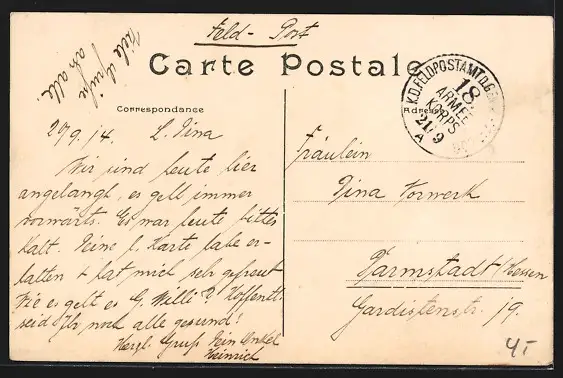 Feld-Post
Viele Grüße
an alle.
Carte Postale
Correspondance
Adresse
K.D.FELDPOSTAMT D.G.
18.
ARMEE
KORPS
21/9
A
20/9.14. L. Tina
Wir sind heute hier
angelangt, es geht immer
vorwärts. Es war heute bitter
kalt. Deine l. Karte habe er-
halten & hat mich sehr gefreut
Wie es geht es G. Willi? Hoffentl.
seid Ihr noch alle gesund!
Herzl. Gruß Dein Onkel
Heinrich
Fräulein
Tina Vorwerk
Darmstadt/Hessen
Gardistenstr. 19.
4,-